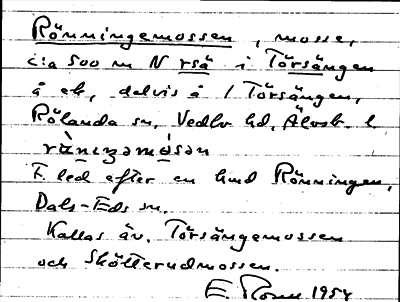 Rönningemossen, mosse,
c:a 500 m N rsä i Törsängen
å ek, delvis å 1 Törsängen,
Rölanda sn, Vedbo hd, Älvsb. l.
F. led efter en hmd Rönningen,
Dals-Eds sn.
Kallas äv. Törsängemossen
och Skötterudmossen.
E. 1954